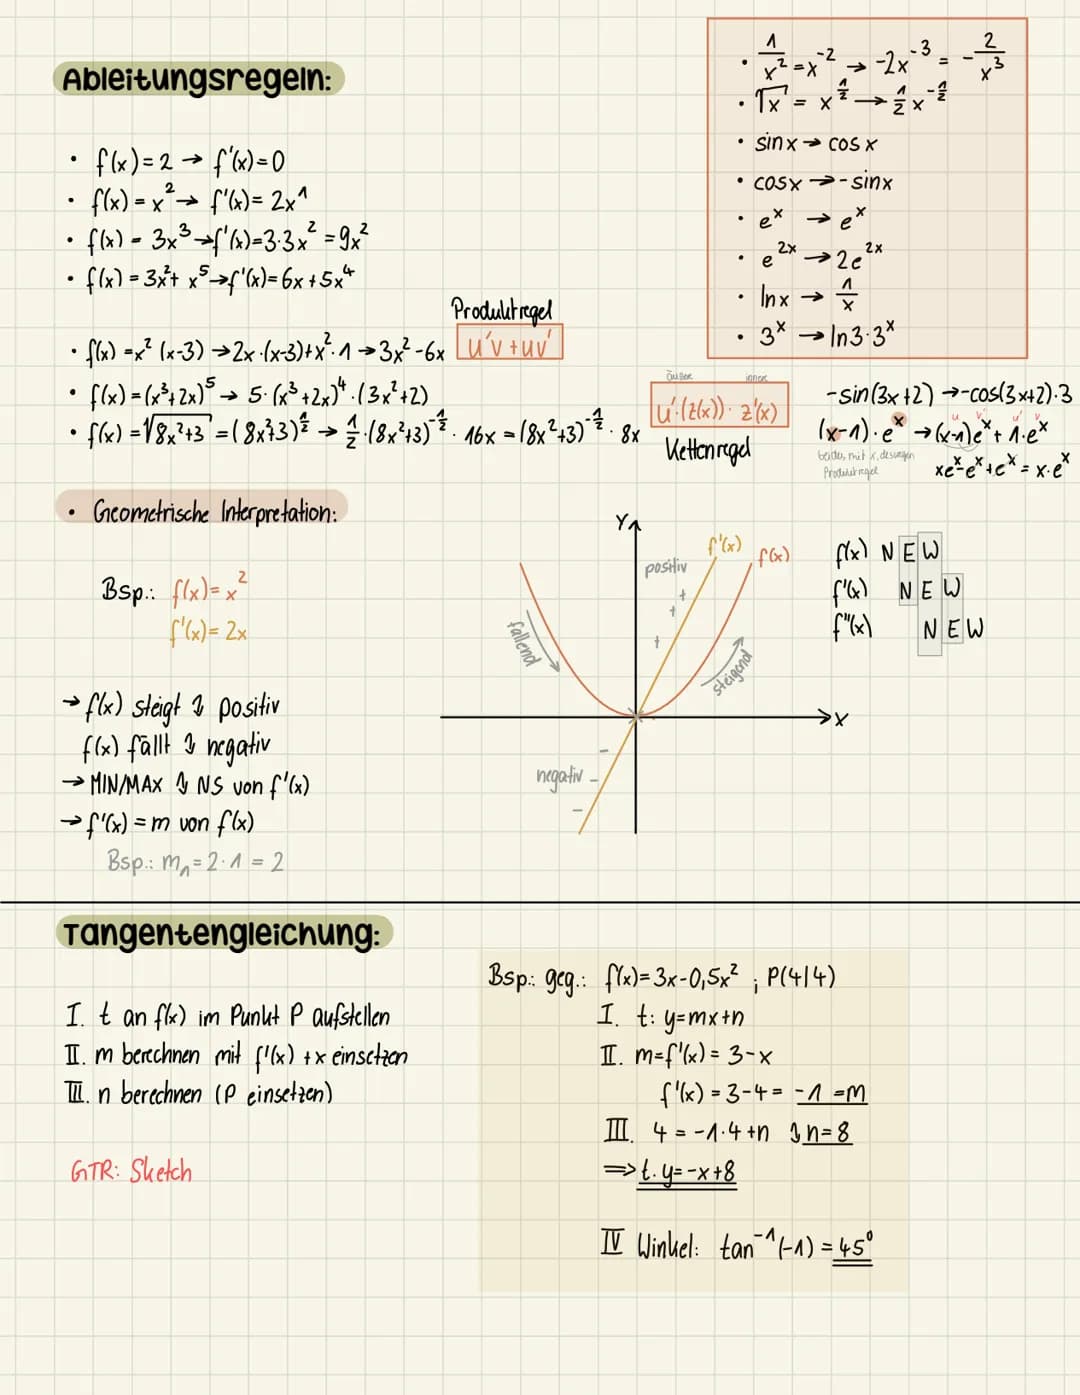 Ableitungsregeln:
• f(x) = 2 → f'(x) = 0
• f(x) = x² → f'(x) = 2x¹
• f(x) = 3x³ → f'(x) = 3·3x² = 9x²
• f(x) = 3x² + x⁵ → f'(x) = 6x + 5x⁴
Produktregel
• f(x) = x² (x-3) → 2x·(x-3) + x²·1 → 3x² - 6x
u'v + uv'
• f(x) = (x³+2x)⁵ → 5·(x³+2x)⁴·(3x²+2)
• f(x) = √(8x²+3) = (8x²+3)^(1/2) → 1/2·(8x²+3)^(-1/2) · 16x = (8x²+3)^(-1/2) · 8x
äußere innere
u'(z(x)) · z'(x)
Kettenregel
• 1/x² = x⁻² → -2x⁻³ = -2/x³
• √x = x^(1/2) → 1/2 x^(-1/2)
• sinx → cosx
• cosx → -sinx
• eˣ → eˣ
• e²ˣ → 2e²ˣ
• lnx → 1/x
• 3ˣ → ln3·3ˣ
-sin(3x+2) → -cos(3x+2)·3
u v' u' v
(x-1)·eˣ → (x-1)eˣ + 1·eˣ
beides mit x, deswegen
Produktregel
xeˣ-eˣ+eˣ = x·eˣ
• Geometrische Interpretation:
Bsp.: f(x) = x²
f'(x) = 2x
→ f(x) steigt ⇕ positiv
f(x) fällt ⇕ negativ
→ MIN/MAX ⇕ NS von f'(x)
→ f'(x) = m von f(x)
Bsp.: m₁ = 2·1 = 2
Y
f'(x)
f(x)
positiv
+
+
+
fallend
steigend
X
negativ
-
-
-
f(x) N E W
f'(x) N E W
f''(x) N E W
Tangentengleichung:
I. t an f(x) im Punkt P aufstellen
II. m berechnen mit f'(x) + x einsetzen
III. n berechnen (P einsetzen)
GTR: Sketch
Bsp.: geg.: f(x) = 3x-0,5x² ; P(4|4)
I. t: y=mx+n
II. m=f'(x) = 3-x
f'(x) = 3-4 = -1 =m
III. 4 = -1·4+n ⇕ n=8
⇒ t. y= -x+8
IV Winkel: tan⁻¹(-1) = 45°